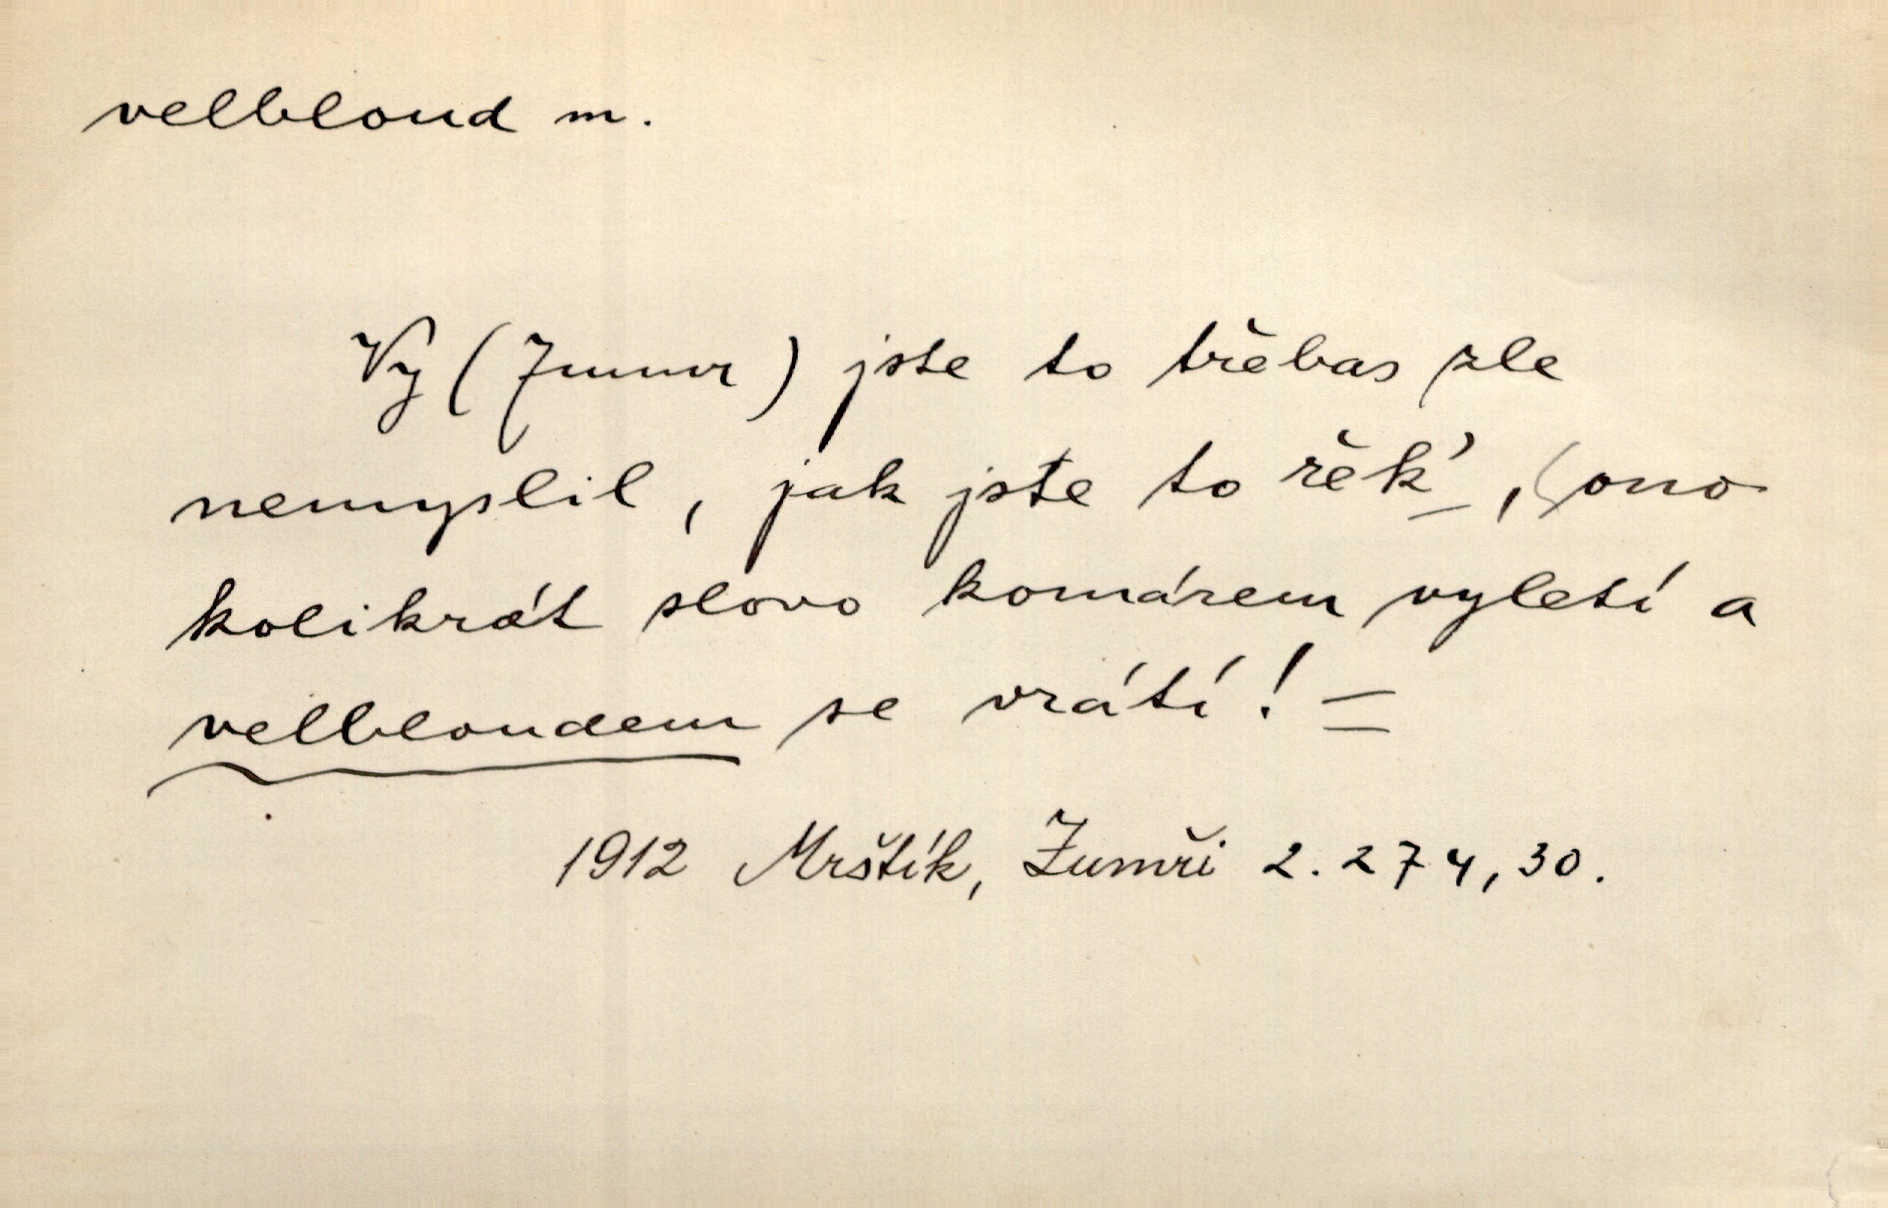 velbloud m.
Vy (Zumr) jste to třebas zle
nemyslil, jak jste to řěk', (ono
kolikrát slovo komárem vyletí a
velbloudem se vrátí! =
1912 Mrštík, Zumři 2. 274, 30.